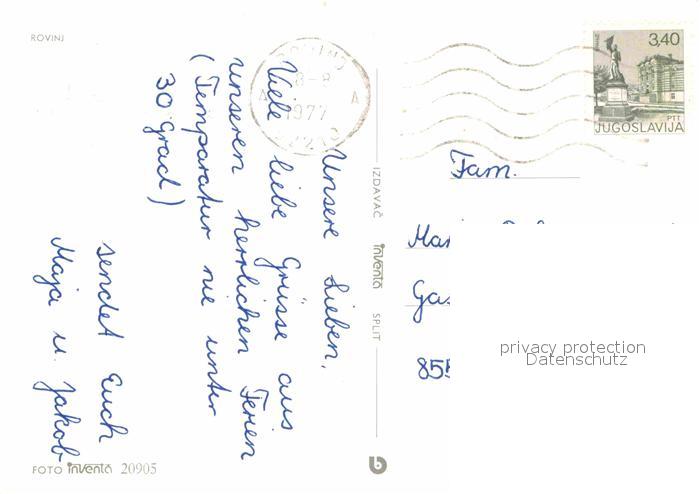 ROVINJ
Unsere Lieben,
Viele liebe Grüsse aus
unseren herrlichen Ferien
(Temparatur nie unter
30 Grad)
sendet Euch
Maja u. Jakob
FOTO inventa 20905
IZDAVAČ inventa SPLIT
8-8
A A
1977
3,40
PTT
JUGOSLAVIJA
Fam.
Mar
Gas
855
privacy protection
Datenschutz